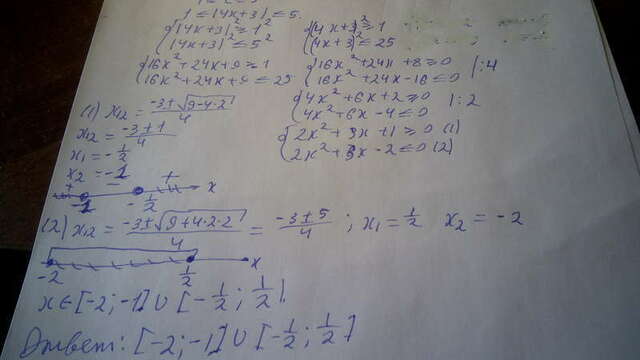 1 ≤ |4x+3| ≤ 5.
{|4x+3|² ≥ 1²
{|4x+3|² ≤ 5²
{(4x+3)² ≥ 1
{(4x+3)² ≤ 25
{16x²+24x+9 ≥ 1
{16x²+24x+9 ≤ 25
{16x²+24x+8 ≥ 0
{16x²+24x-16 ≤ 0 |:4
{4x²+6x+2 ≥ 0
{4x²+6x-4 ≤ 0 |:2
{2x²+3x+1 ≥ 0 (1)
{2x²+3x-2 ≤ 0 (2)
(1) x₁,₂ = (-3±√(9-4·2))/4
x₁,₂ = (-3±1)/4
x₁ = -1/2
x₂ = -1
+ - + x
-1 -1/2
(2) x₁,₂ = (-3±√(9+4·2·2))/4 = (-3±5)/4 ; x₁ = 1/2 x₂ = -2
-2 1/2 x
x ∈ [-2;-1] ∪ [-1/2; 1/2]
Ответ: [-2;-1] ∪ [-1/2; 1/2]